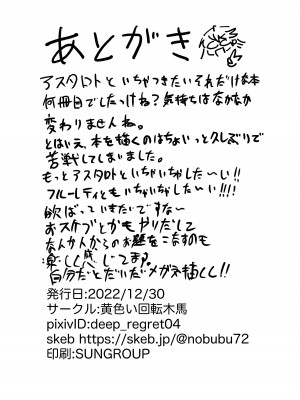 あとがき
アスタロトといちゃつきたいそれだけな本
何冊目でしたっけね？気持ちはなかなか
変わりませんね。
とはいえ、本を描くのはちょいっと久しぶりで
苦戦してしまいました。
もっとアスタロトといちゃいちゃした〜い!!
フルーレティともいちゃいちゃした〜い!!!
欲ばっていきたいですな〜
おスケブとかもやりだして
なんか人からのお題をこなすのも
楽しく感じてます。
自分だとだいたいメガネ描くし!!
発行日:2022/12/30
サークル:黄色い回転木馬
pixivID:deep_regret04
skeb https://skeb.jp/@nobubu72
印刷:SUNGROUP